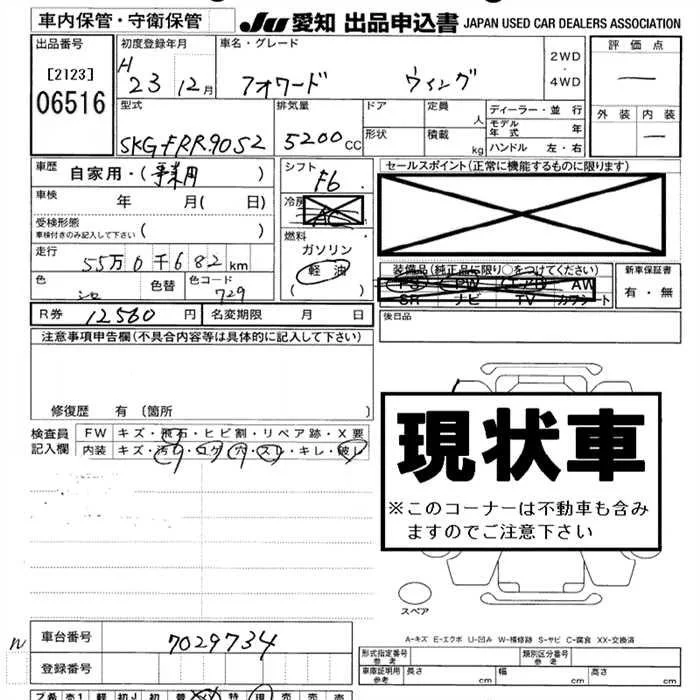 車内保管・守衛保管
JU 愛知 出品申込書 JAPAN USED CAR DEALERS ASSOCIATION
出品番号
[2123]
06516
初度登録年月
H 23 12月
車名・グレード
フォワード ウィング
2WD
・
4WD
評価点
—
外装 内装
—
型式
SKG-FRR90S2
排気量
5200cc
ドア
形状
定員 人
積載 kg
ディーラー・並行
モデル年式 年
ハンドル 左・右
車歴
自家用・(事業用 )
車検 年 月( 日)
受検形態
車検付きのみ記入して下さい ( )
走行
55万0千682km
色
シロ
色替
色コード
729
シフト
F6
冷房
AC
燃料
ガソリン
軽油
( )
セールスポイント(正常に機能するものに限ります)
装備品(純正品に限り○をつけてください)
PS PW エアB AW
SR ナビ TV カワシート
新車保証書
有・無
R券 12560円
名変期限 月 日
後日品
注意事項申告欄(不具合内容等は具体的に記入して下さい)
修復歴 有〔箇所 〕
検査員
記入欄
FW キズ・飛石・ヒビ割・リペア跡・X要
内装 キズ・汚れ・コゲ・穴・スレ・キレ・破レ
現状車
※このコーナーは不動車も含み
ますのでご注意下さい
スペア
A-キズ E-エクボ U-凹み W-補修跡 S-サビ C-腐食 XX-交換済
N
車台番号 7029734
登録番号
形式指定番号
参考
類別区分番号
参考
車庫証明用
参考
長さ cm 幅 cm 高さ cm